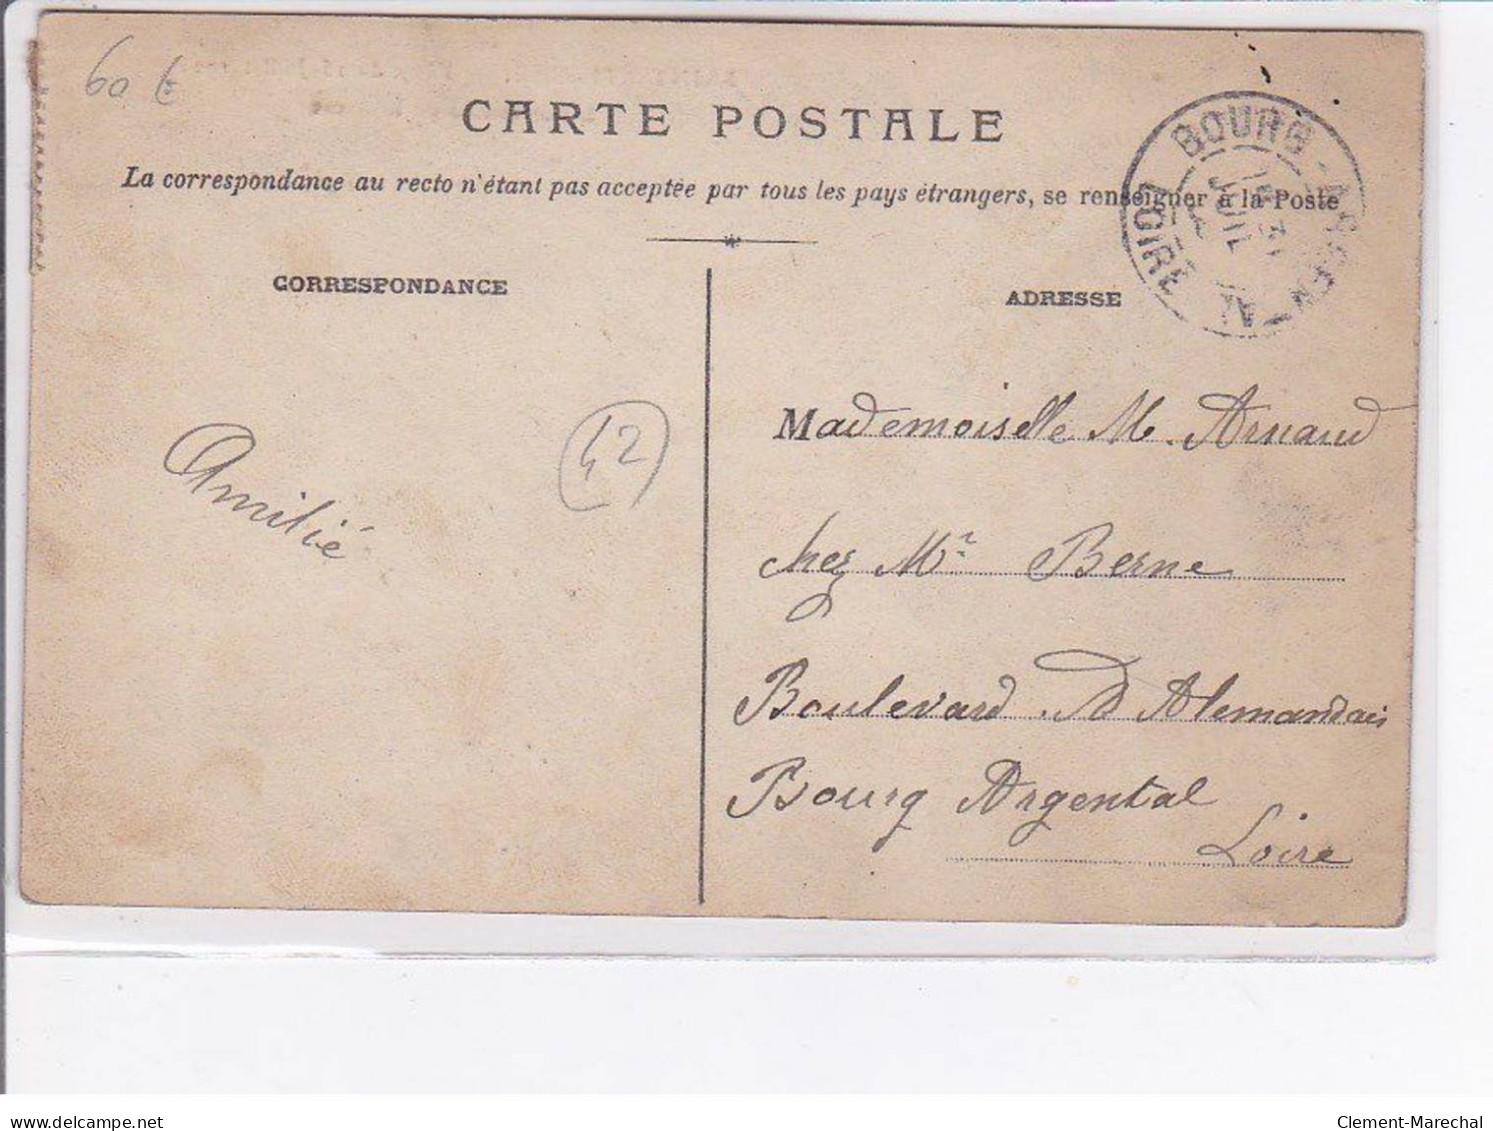 60 €
CARTE POSTALE
La correspondance au recto n'étant pas acceptée par tous les pays étrangers, se renseigner à la Poste
BOURG-ARGENTAL
LOIRE
JUIL
CORRESPONDANCE
ADRESSE
Amitié
42
Mademoiselle M. Arnaud
chez Mr Berne
Boulevard d'Alemandais
Bourg Argental
Loire
Clement-Marechal